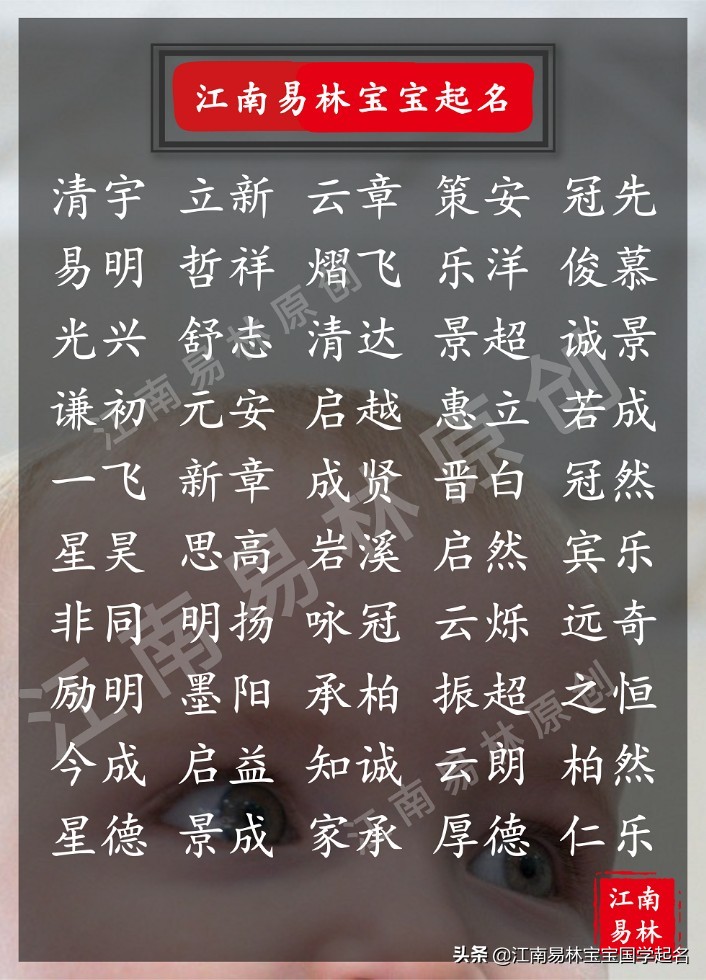 江南易林宝宝起名
清宇 立新 云章 策安 冠先
易明 哲祥 熠飞 乐洋 俊慕
光兴 舒志 清达 景超 诚景
谦初 元安 启越 惠立 若成
一飞 新章 成贤 晋白 冠然
星昊 思高 岩溪 启然 宾乐
非同 明扬 咏冠 云烁 远奇
励明 墨阳 承柏 振超 之恒
今成 启益 知诚 云朗 柏然
星德 景成 家承 厚德 仁乐
江南易林原创
江南易林原创
江南易林原创
江南
易林
头条 @江南易林宝宝国学起名